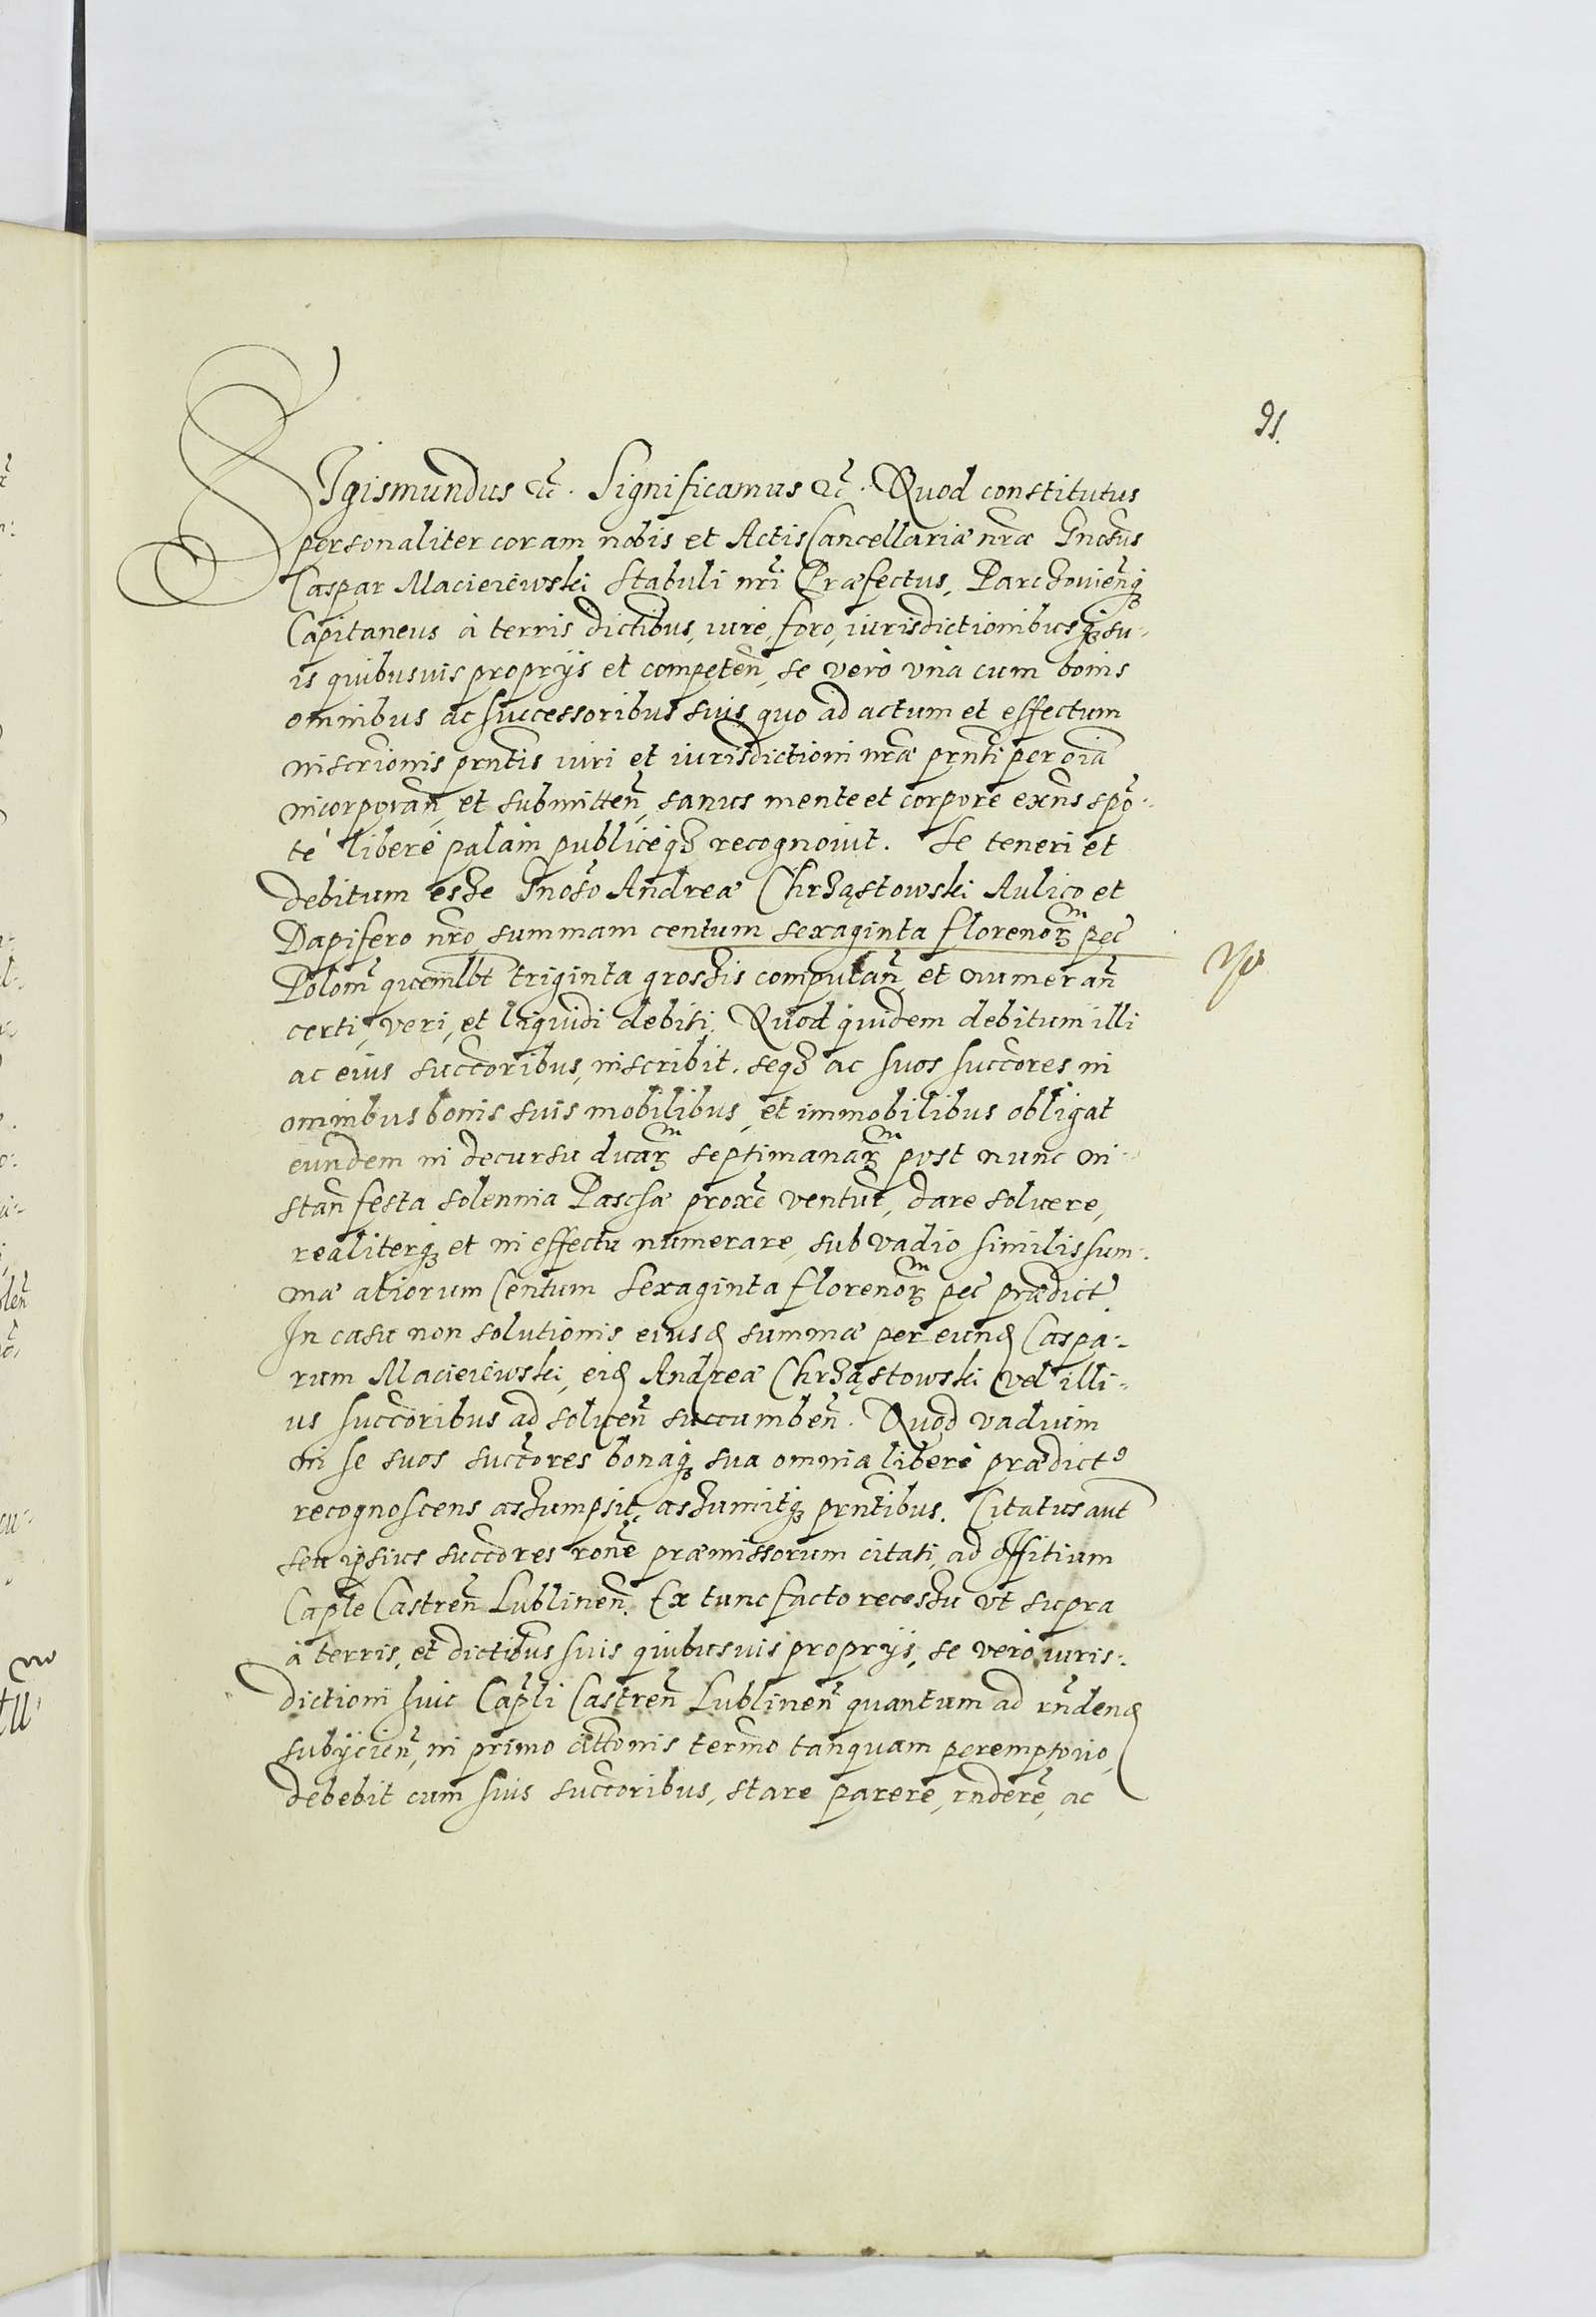 91.
Sigismundus &c̃. Significamus &c̃. Quod constitutus
personaliter coram nobis et Actis Cancellariæ nr̃æ Gnosus
Caspar Macieiewski Stabuli nr̃i Præfectus, Parchouien̄q3
Capitaneus à terris dictibus, iure, foro, iurisdictionibusq3 su-
is quibusuis proprijs et competen̄, se vero vna cum bonis
omnibus ac successoribus suis quo ad actum et effectum
inscrionis prntis iuri et iurisdictioni nr̃æ prnti per oīa
incorporan̄, et submitten̄, sanus mente et corpore exn̄s spō-
te libere palam publiceq3 recognouit. Se teneri et
debitum esse Gnoso Andreæ Chrząstowski Aulico et
Dapifero nr̃o summam centum sexaginta florenor̃ pec̃
Polon̄ quemlbt triginta grossis computan̄, et numeran̄
certi, veri, et liquidi debiti. Quod quidem debitum illi
ac eius succoribus, inscribit. seq3 ac suos succores in
omnibus bonis suis mobilibus, et immobilibus obligat
eundem in decursu duar̃ septimanar̃ post nunc in-
stan̄ festa solennia Paschæ proxe ventur̃, dare soluere,
realiterq3 et in effectu numerare, sub vadio similis sum-
mæ aliorum Centum Sexaginta florenor̃ pec̃ prædict
In casu non solutionis eiusd summæ per eund Caspa-
rum Macieiewski, eid Andreæ Chrząstowski vel illi-
us succoribus ad soluen̄ succumben̄. Quod vadium
in se suos succores bonaq3 sua omnia libere prædict9
recognoscens assumpsit, assumitq3 prntibus. Citatus aut
seu ipsius succores rone præmissorum citati, ad Offitium
Caple Castren̄ Lublinen̄. Ex tunc facto recessu vt supra
à terris, et dictibus suis quibusuis proprijs, se vero iuris-
dictioni huic Capli Castren̄ Lublinen̄ quantum ad rn̄dend
subijcien̄, in primo cittonis termo tanquam peremptorio,
debebit cum suis succoribus, stare parere, rn̄dere, ac